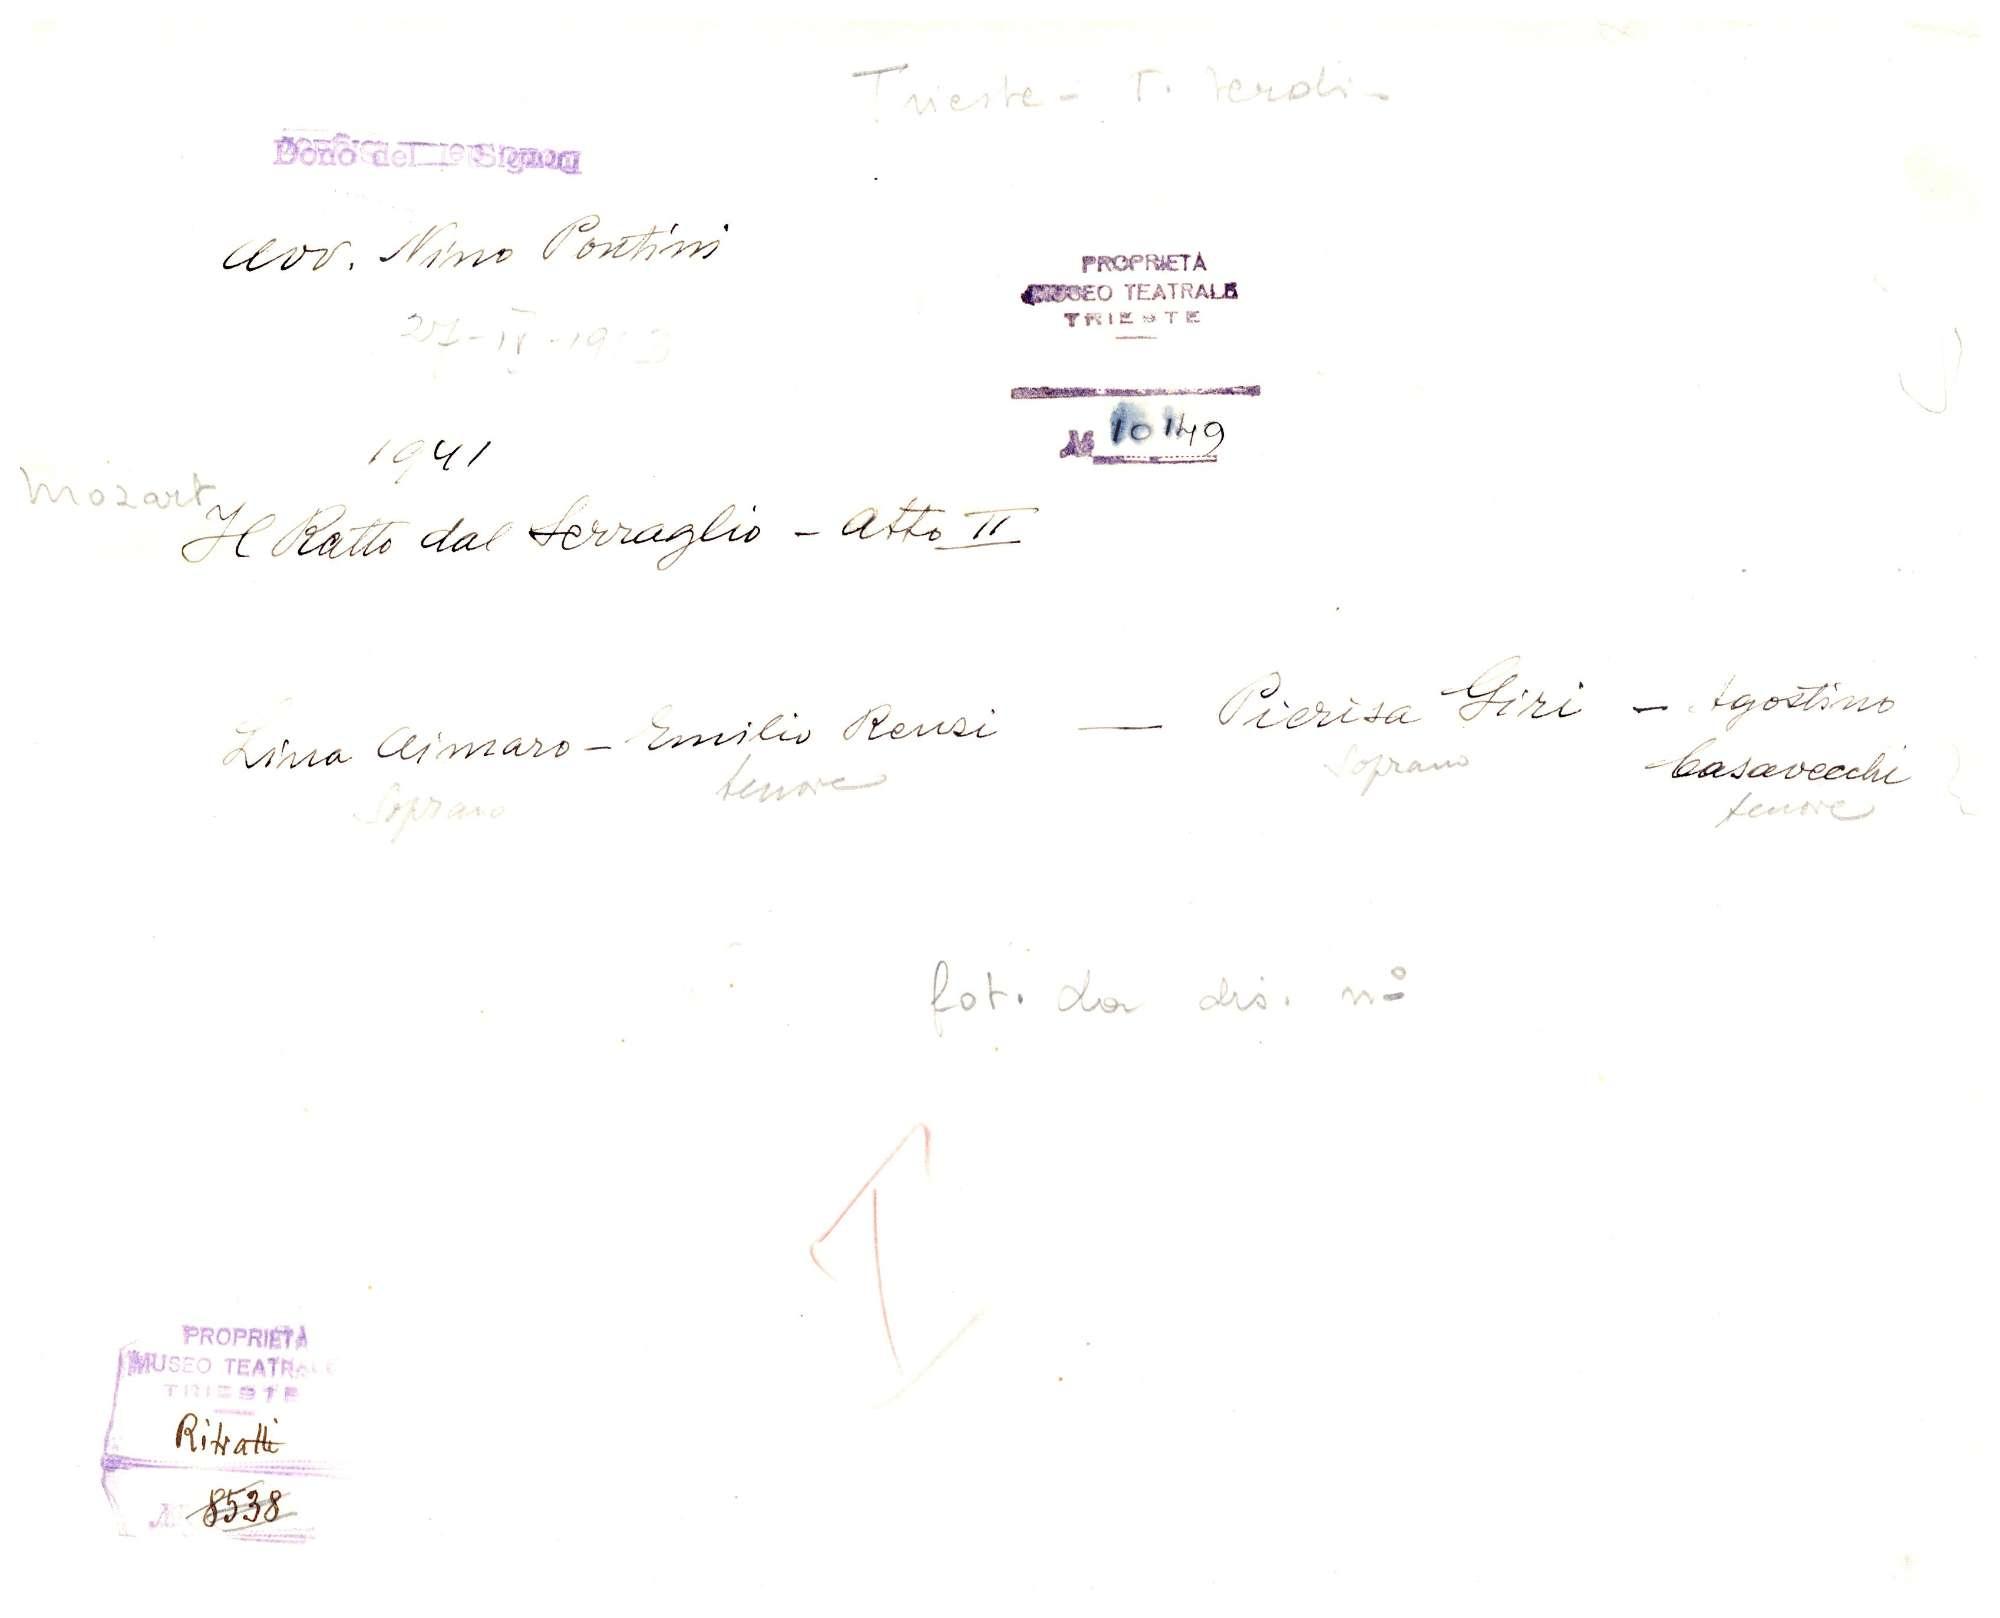 Trieste - T. Verdi -
Dono del Signor
avv. Nino Pontini
27-IV-1943
PROPRIETÀ
MUSEO TEATRALE
TRIESTE
№ 10149
1941
Mozart
Il Ratto dal Serraglio - Atto II
Lina Aimaro - Emilio Renzi — Pierisa Giri - Agostino
Casavecchi
soprano tenore soprano tenore
fot. da dis. nº
PROPRIETÀ
MUSEO TEATRALE
TRIESTE
Ritratti
№ 8538